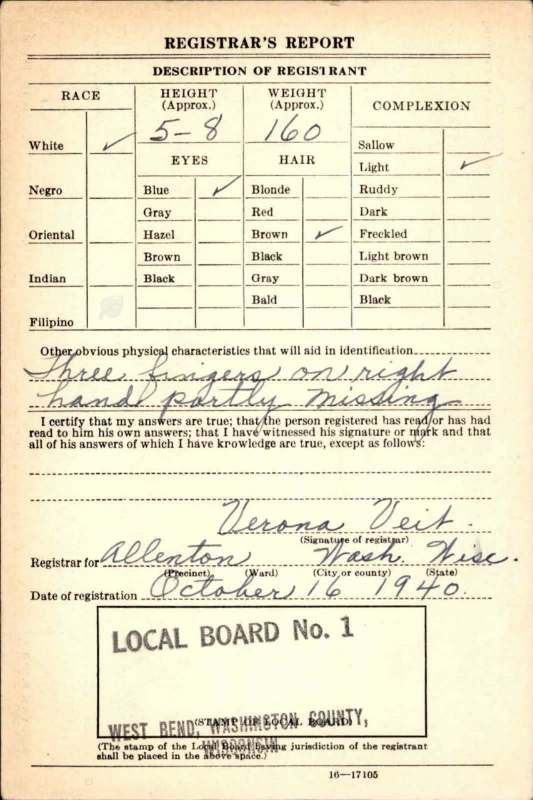 REGISTRAR'S REPORT
DESCRIPTION OF REGISTRANT
RACE
HEIGHT
(Approx.)
WEIGHT
(Approx.)
COMPLEXION
5-8
160
White ✓
Negro
Oriental
Indian
Filipino
EYES
Blue ✓
Gray
Hazel
Brown
Black
HAIR
Blonde
Red
Brown ✓
Black
Gray
Bald
Sallow
Light ✓
Ruddy
Dark
Freckled
Light brown
Dark brown
Black
Other obvious physical characteristics that will aid in identification
Three fingers on right
hand partly missing
I certify that my answers are true; that the person registered has read or has had
read to him his own answers; that I have witnessed his signature or mark and that
all of his answers of which I have knowledge are true, except as follows:
Verona Veit.
(Signature of registrar)
Registrar for Allenton Wash. Wisc.
(Precinct) (Ward) (City or county) (State)
Date of registration October 16 1940.
LOCAL BOARD No. 1
(STAMP OF LOCAL BOARD)
WEST BEND, WASHINGTON COUNTY,
WISCONSIN
(The stamp of the Local Board having jurisdiction of the registrant
shall be placed in the above space.)
16—17105